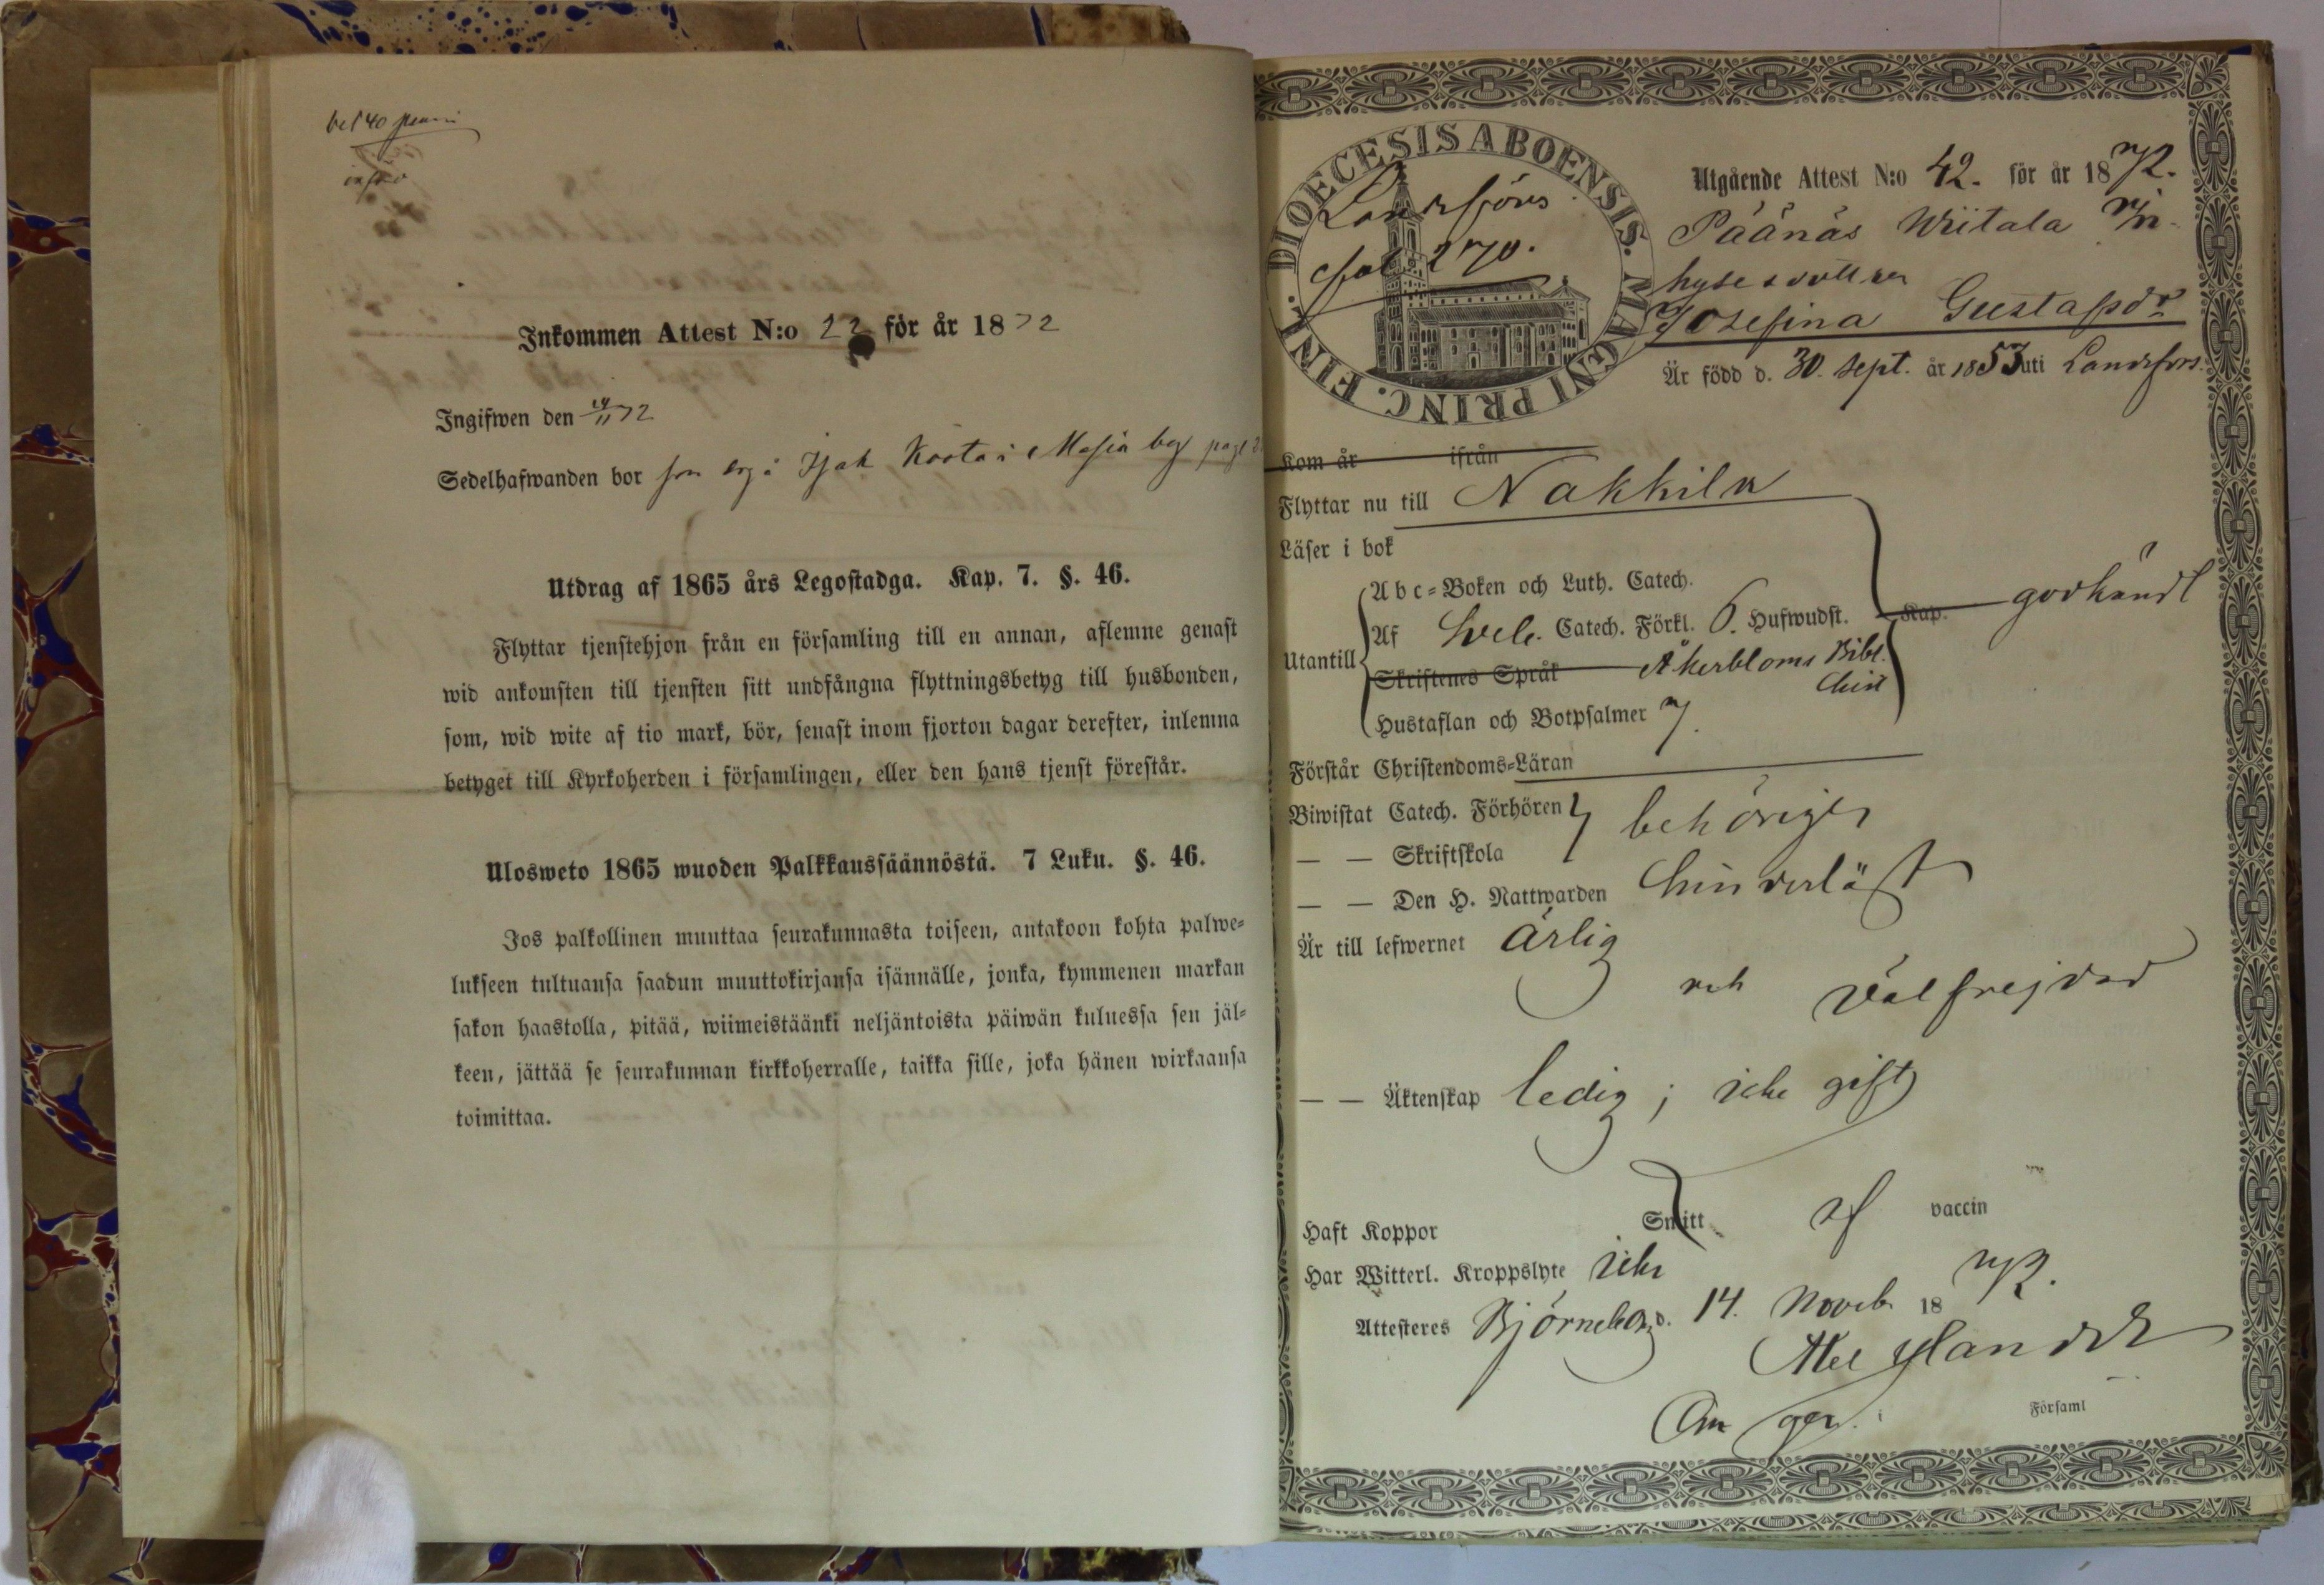 bet 40 penni
Inkommen Attest N:o 22 för år 1872
Ingifwen den 19/11 72
Sedelhafwanden bor Isak Koota i Masia by pag
Utdrag af 1865 års Legostadga. Kap. 7. §. 46.
Flyttar tjenstehjon från en församling till en annan, aflemne genast
wid ankomsten till tjensten sitt undfångna flyttningsbetyg till husbonden,
som, wid wite af tio mark, bör, senast inom fjorton dagar derefter, inlemna
betyget till Kyrkoherden i församlingen, eller den hans tjenst förestår.
Ulosweto 1865 wuoden Palkkaussäännöstä. 7 Luku. §. 46.
Jos palkollinen muuttaa seurakunnasta toiseen, antakoon kohta palwe=
lukseen tultuansa saadun muuttokirjansa isännälle, jonka, kymmenen markan
sakon haastolla, pitää, wiimeistäänki neljäntoista päiwän kuluessa sen jäl=
keen, jättää se seurakunnan kirkkoherralle, taikka sille, joka hänen wirkaansa
toimittaa.
DIOECESIS ABOENSIS. MAGNI PRINC. FINL.
fol. 270.
Utgående Attest N:o 42. för år 1872.
Päänäs Wiitala
hysesdottren
Josefina Gustafsdr
Är född d. 30. Sept. år 1853 uti Landsförs.
Kom år ifrån
Flyttar nu till Nakkila
Läser i bok
Abc=Boken och Luth. Catech.
Utantill Af Sveb. Catech. Förkl. 6. Hufwudst. Kap. godkändt
Skriftenes Språk Åkerbloms Bibl.
Hist
Hustaflan och Botpsalmer 7.
Förstår Christendoms=Läran
Biwistat Catech. Förhören behörigen
— — Skriftskola
— — Den H. Nattwarden
Är till lefwernet ärlig
och välfrejdad
— — Äktenskap ledig; icke gift
Haft Koppor Snitt af vaccin
Har Witterl. Kroppslyte icke
Attesteres Björneborg d. 14. Novemb. 1872.
i Församl